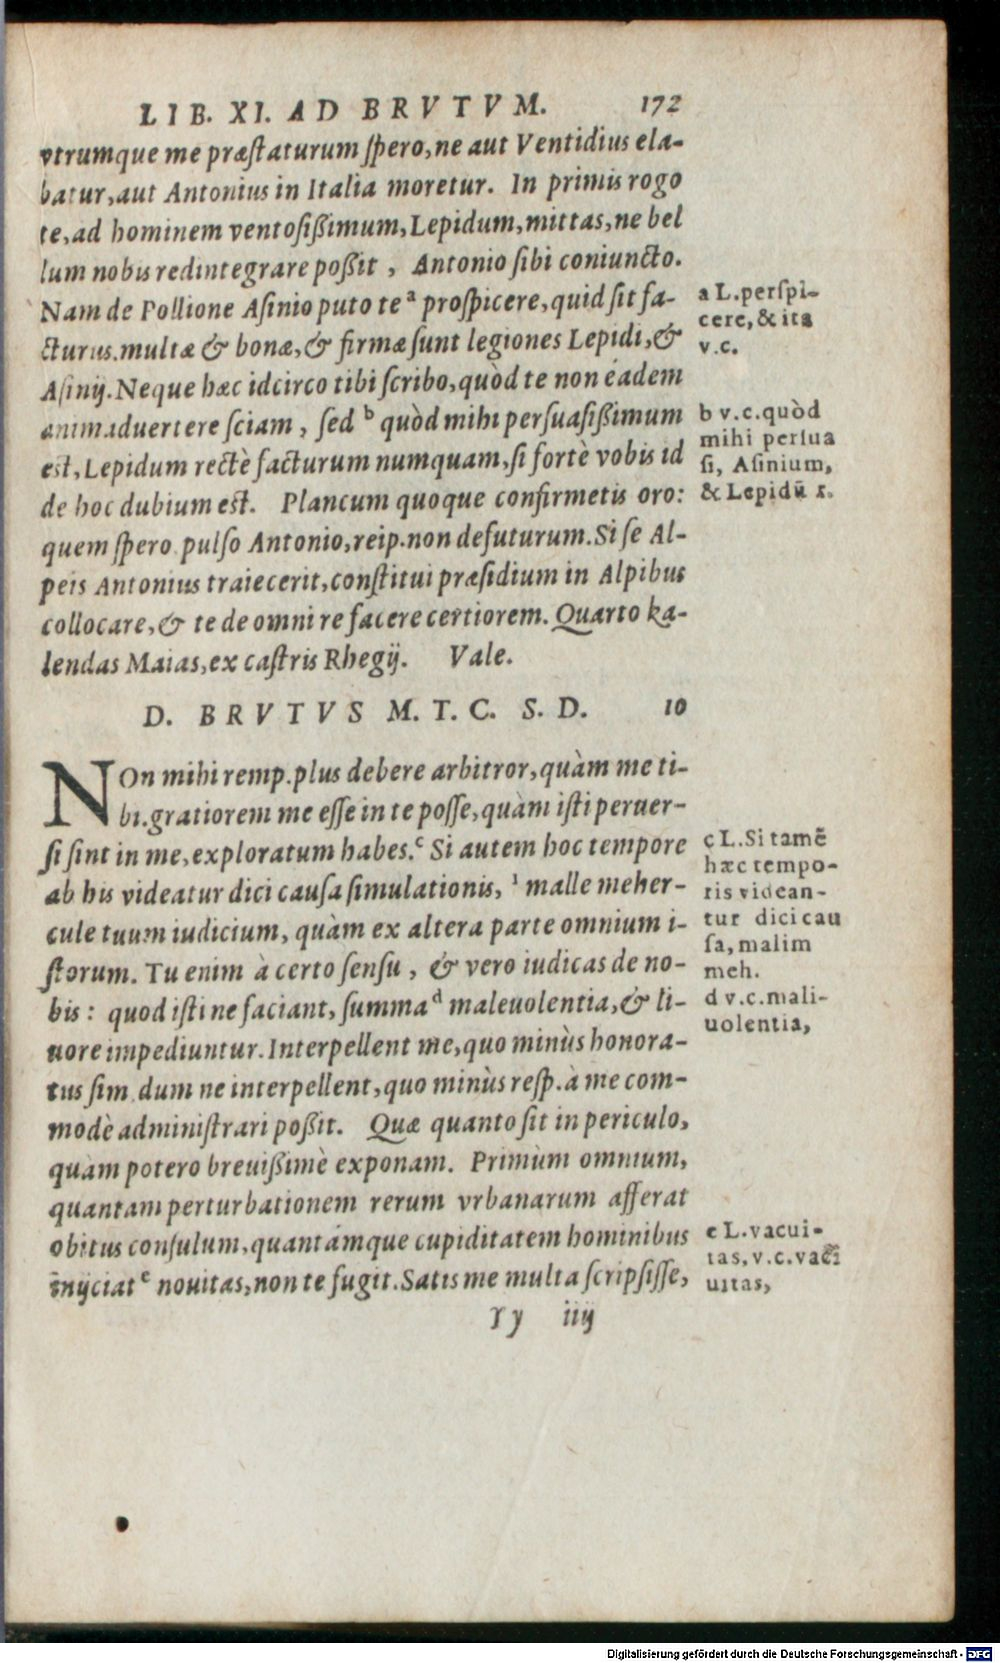 LIB. XI. AD BRVTVM. 172
vtrumque me præſtaturum ſpero, ne aut Ventidius ela-
batur, aut Antonius in Italia moretur. In primis rogo
te, ad hominem ventoſiſſimum, Lepidum, mittas, ne bel
lum nobis redintegrare poßit, Antonio ſibi coniuncto.
Nam de Pollione Aſinio puto te ᵃ proſpicere, quid ſit fa-
cturus. multæ & bonæ, & firmæ ſunt legiones Lepidi, &
Aſinij. Neque hæc idcirco tibi ſcribo, quòd te non éadem
animaduertere ſciam, ſed ᵇ quòd mihi perſuaſißimum
est, Lepidum rectè facturum numquam, ſi fortè vobis id
de hoc dubium est. Plancum quoque confirmetis oro:
quem ſpero pulſo Antonio, reip. non defuturum. Si ſe Al-
peis Antonius traiecerit, conſtitui præſidium in Alpibus
collocare, & te de omni re facere certiorem. Quarto ka-
lendas Maias, ex caſtris Rhegij. Vale.
a L. perſpi-
cere, & ita
v.c.
b v.c. quòd
mihi perſua
ſi, Aſinium,
& Lepidū r.
D. BRVTVS M. T. C. S. D. 10
NOn mihi remp. plus debere arbitror, quàm me ti-
bi. gratiorem me eſſe in te poſſe, quàm iſti peruer-
ſi sint in me, exploratum habes. ᶜ Si autem hoc tempore
ab his videatur dici cauſa ſimulationis, malle meher-
cule tuum iudicium, quàm ex altera parte omnium i-
ſtorum. Tu enim à certo ſenſu, & vero iudicas de no-
bis: quod iſti ne faciant, ſumma ᵈ maleuolentia, & li-
uore impediuntur. Interpellent me, quo minùs honora-
tus ſim dum ne interpellent, quo minùs reſp. à me com-
modè adminiſtrari poßit. Quæ quanto ſit in periculo,
quàm potero breuißimè exponam. Primùm omnium,
quantam perturbationem rerum vrbanarum afferat
obitus conſulum, quantámque cupiditatem hominibus
inijciat ᵉ nouitas, non te fugit. Satis me multa ſcripſiſſe,
c L. Si tamē
hæc tempo-
ris videan-
tur dici cau
ſa, malim
meh.
d v.c. mali-
uolentia,
e L. vacui-
tas, v.c. vaci
uitas,
Yy iiij
Digitalisierung gefördert durch die Deutsche Forschungsgemeinschaft - DFG